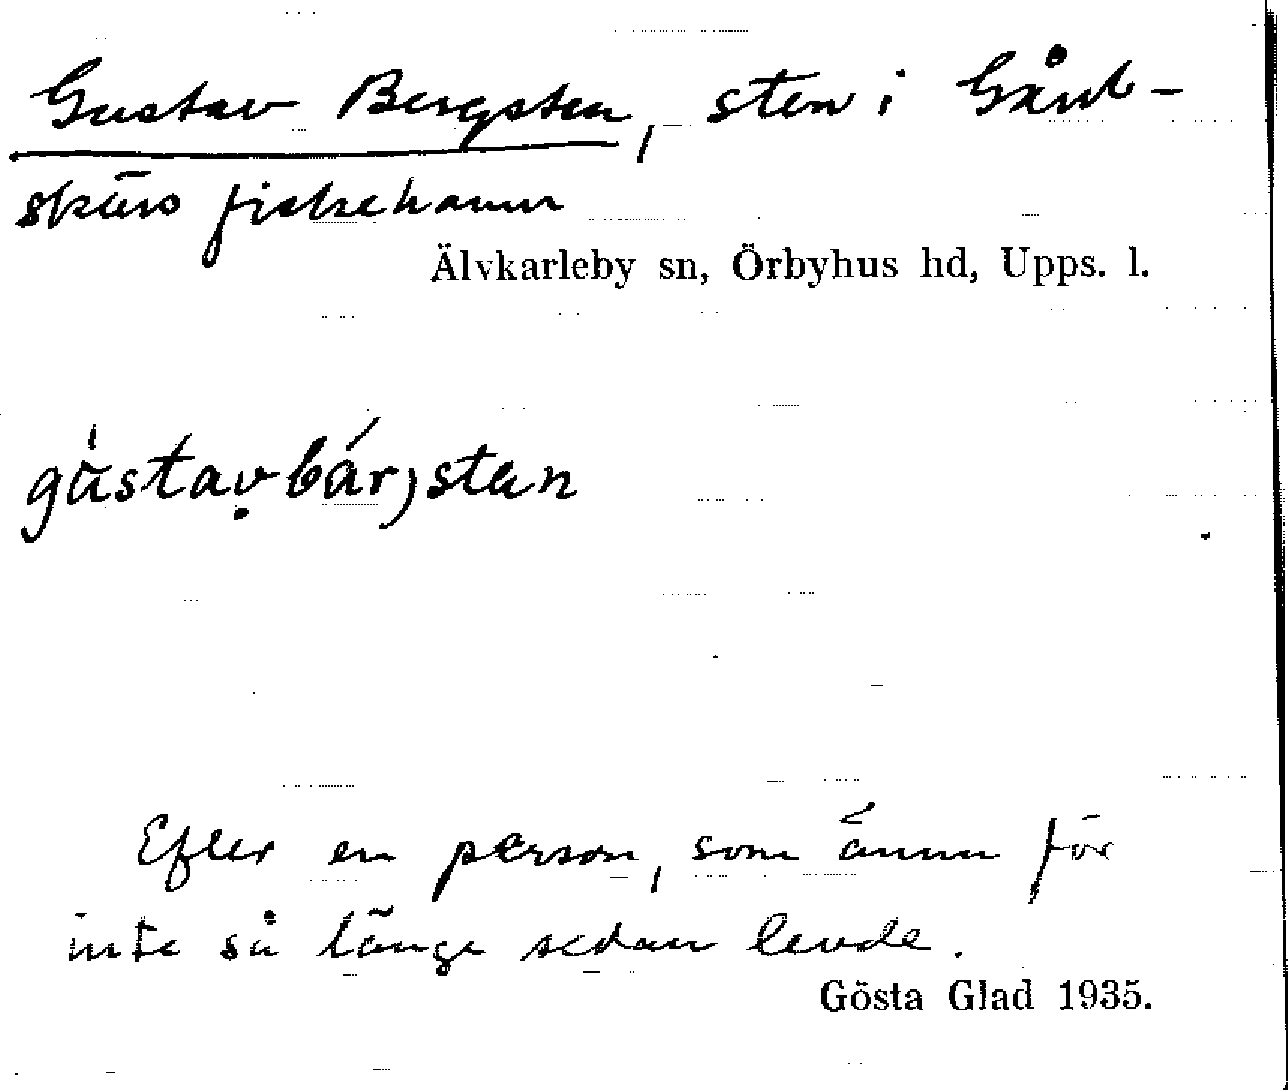 Gustav Bergsten, sten i Gård-
skärs fiskehamn
Älvkarleby sn, Örbyhus hd, Upps. l.
Efter en person, som ännu för
inte så länge sedan levde.
Gösta Glad 1935.